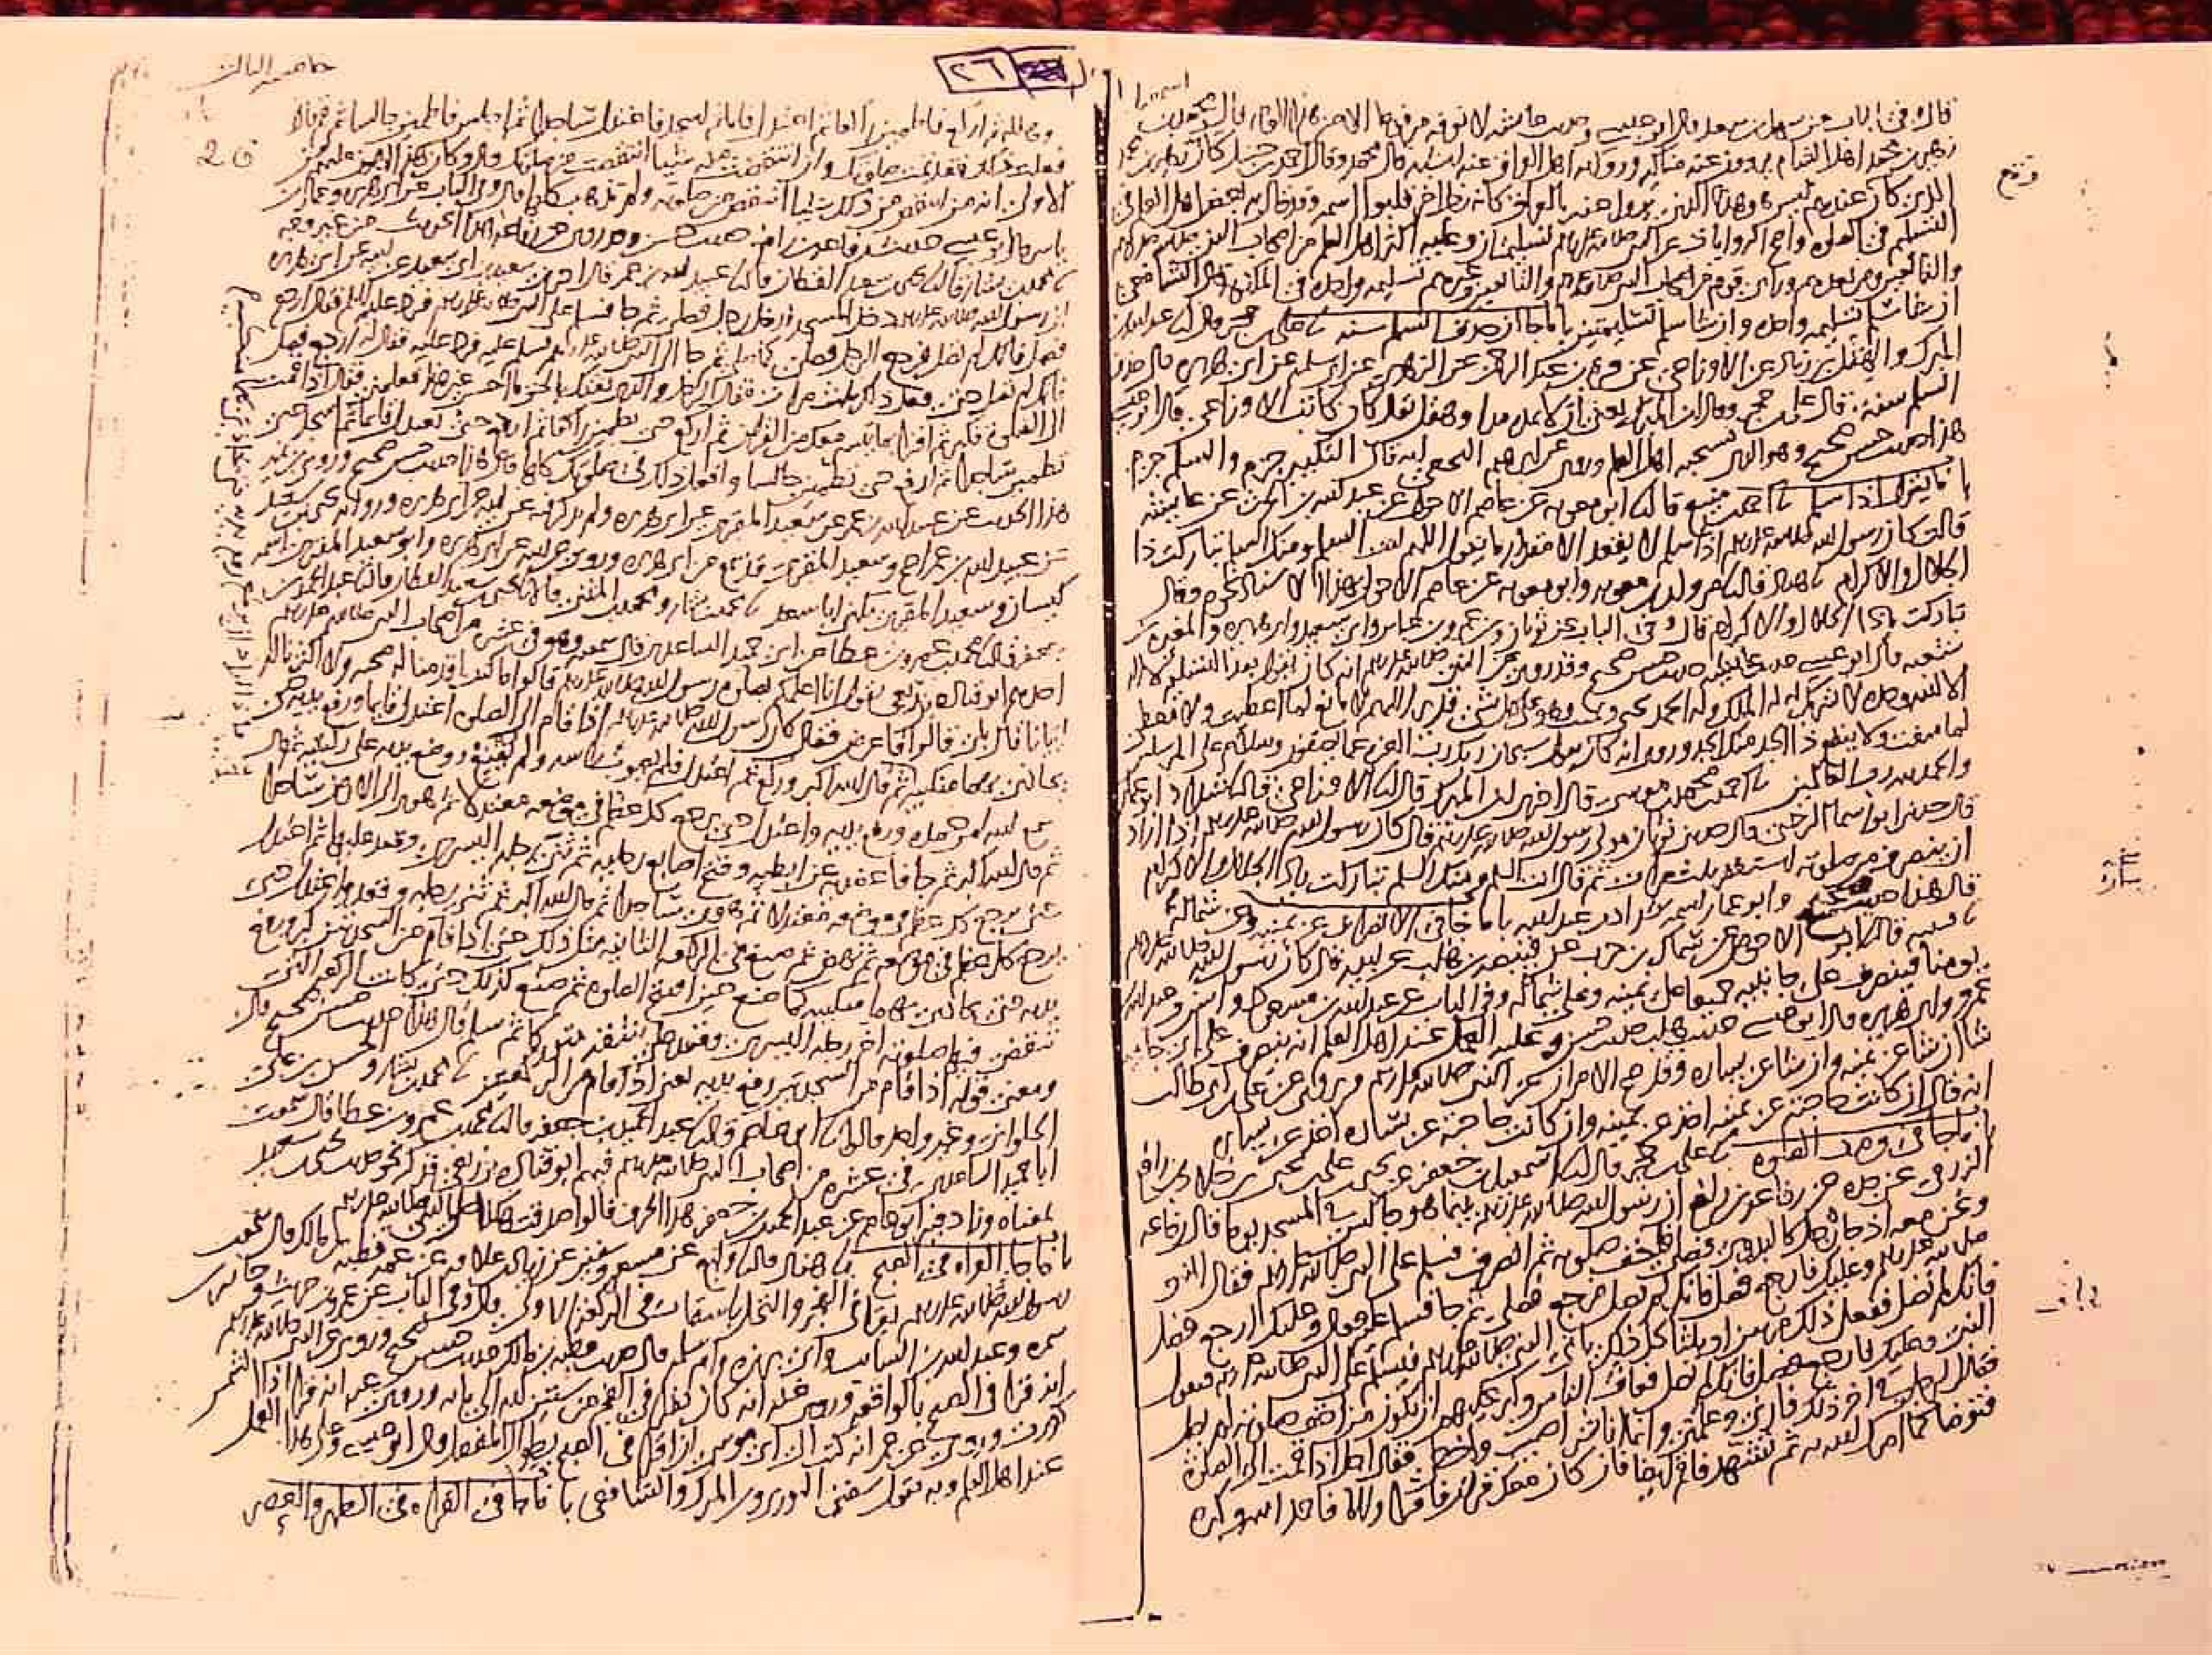 قال وفي الباب عن سهل بن سعد قال ابو عيسى وحديث عايشه لا نعرفه مرفوعا الا من هذا الوجه قال محمد بن
زهير بن محمد اهل الشام يروون عنه مناكير ورواية اهل العراق عنه اشبه قال محمد وقال احمد بن حنبل كان زهير بن محمد
الذي كان عندهم ليس هو هذا الذي يروى عنه بالعراق كانه رجل اخر قلبوا اسمه وقد قال به بعض اهل العلم في
التسليم في الصلوه واصح الروايات عن النبي صلى الله عليه وسلم تسليمتان وعليه اكثر اهل العلم من اصحاب النبي صلى الله عليه وسلم
والتابعين ومن بعدهم وراى قوم من اصحاب النبي صلى الله عليه وسلم والتابعين وغيرهم تسليمه واحده في المكتوبه قال الشافعي
ان شا سلم تسليمه واحده وان شا سلم تسليمتين باب ما جا ان حذف السلم سنه نا علي بن حجر قال نا عبد الله بن
المبرك والهقل بن زياد عن الاوزاعي عن قره بن عبد الرحمن عن الزهري عن ابي سلمه عن ابي هريره قال حذف
السلم سنه قال علي بن حجر وقال ابن المبرك يعني ان لا تمده مدا وهقل يقال كان كاتب الاوزاعي قال ابو عيسى
هذا حديث حسن صحيح وهو الذي يستحبه اهل العلم وروي عن ابراهيم النخعي انه قال التكبير جزم والسلم جزم
باب ما يقول اذا سلم نا احمد بن منيع قال نا ابو معويه عن عاصم الاحول عن عبد الله بن الحرث عن عايشه
قالت كان رسول الله صلى الله عليه وسلم اذا سلم لا يقعد الا مقدار ما يقول اللهم انت السلم ومنك السلم تباركت ذا
الجلال والاكرام نا هناد قال نا مرون بن معويه وابو معويه عن عاصم الاحول بهذا الاسناد نحوه وقال
تباركت يا ذا الجلال والاكرام قال وفي الباب عن ثوبان وابن عمر وابن عباس وابي سعيد وابي هريره والمغيره بن
شعبه قال ابو عيسى حديث عايشه حديث حسن صحيح وقد روي عن النبي صلى الله عليه وسلم انه كان يقول بعد التسليم لا اله
الا الله وحده لا شريك له له الملك وله الحمد يحيي ويميت وهو على كل شي قدير اللهم لا مانع لما اعطيت ولا معطي
لما منعت ولا ينفع ذا الجد منك الجد وروي انه كان يقول سبحان ربك رب العزه عما يصفون وسلام على المرسلين
والحمد لله رب العالمين نا احمد بن محمد بن موسى قال اخبرنا ابن المبرك قال نا الاوزاعي قال نا شداد ابو عمار
قال حدثني ابو اسما الرحبي قال حدثني ثوبان مولى رسول الله صلى الله عليه وسلم قال كان رسول الله صلى الله عليه وسلم اذا اراد
ان ينصرف من صلوته استغفر ثلث مرات ثم قال انت السلم ومنك السلم تباركت يا ذا الجلال والاكرام
قال هذا حديث صحيح وابو عمار اسمه شداد بن عبد الله باب ما جا في الانصراف عن يمينه وعن شماله
نا قتيبه قال نا ابو الاحوص عن سماك بن حرب عن قبيصه بن هلب عن ابيه قال كان رسول الله صلى الله عليه وسلم
يومنا فينصرف على جانبيه جميعا على يمينه وعلى شماله وفي الباب عن عبد الله بن مسعود وانس وعبد الله بن
عمرو وابي هريره قال ابو عيسى حديث هلب حديث حسن وعليه العمل عند اهل العلم انه ينصرف على اي جانبيه
شا ان شا عن يمينه وان شا عن يساره وقد صح الامران عن النبي صلى الله عليه وسلم ويروى عن علي بن ابي طالب
انه قال ان كانت حاجته عن يمينه اخذ عن يمينه وان كانت حاجته عن يساره اخذ عن يساره
باب ما جا في وصف الصلوه نا علي بن حجر قال نا اسمعيل بن جعفر عن يحيى بن علي بن يحيى بن خلاد بن رافع
الزرقي عن جده عن رفاعه بن رافع ان رسول الله صلى الله عليه وسلم بينما هو جالس في المسجد يوما قال رفاعه
ونحن معه اذ جا رجل كالبدوي فصلى فاخف صلوته ثم انصرف فسلم على النبي صلى الله عليه وسلم فقال النبي
صلى الله عليه وسلم وعليك فارجع فصل فانك لم تصل فرجع فصلى ثم جا فسلم عليه فقال وعليك ارجع فصل
فانك لم تصل ففعل ذلك مرتين او ثلثا كل ذلك ياتي النبي صلى الله عليه وسلم فيسلم على النبي صلى الله عليه وسلم فيقول
النبي وعليك فارجع فصل فانك لم تصل فعاف الناس وكبر عليهم ان يكون من اخف صلوته لم يصل
فقال الرجل في اخر ذلك فارني وعلمني وانما انا بشر اصيب واخطي فقال اجل اذا قمت الى الصلوه
فتوضا كما امرك الله به ثم تشهد فاقم ايضا فان كان معك قران فاقرا والا فاحمد الله وكبره
٢٦
26
وهلله ثم اركع فاطمين راكعا ثم اعتدل قايما ثم اسجد فاعتدل ساجدا ثم اجلس فاطمين جالسا ثم قم فاذا
فعلت ذلك فقد تمت صلوتك وان انتقصت منه شيا انتقصت من صلوتك قال وكان هذا اهون عليهم من
الاولى انه من انتقص من ذلك شيا انتقص من صلوته ولم تذهب كلها قال وفي الباب عن ابي هريره وعمار بن
ياسر قال ابو عيسى حديث رفاعه بن رافع حديث حسن وقد روي عن رفاعه هذا الحديث من غير وجه
نا محمد بن بشار قال نا يحيى بن سعيد القطان قال نا عبيد الله بن عمر قال اخبرني سعيد بن ابي سعيد عن ابيه عن ابي هريره
ان رسول الله صلى الله عليه وسلم دخل المسجد فدخل رجل فصلى ثم جا فسلم على النبي صلى الله عليه وسلم فرد عليه السلم فقال ارجع
فصل فانك لم تصل فرجع الرجل فصلى كما صلى ثم جا الى النبي صلى الله عليه وسلم فسلم عليه فرد عليه فقال له ارجع فصل
فانك لم تصل حتى فعل ذلك ثلث مرات فقال الرجل والذي بعثك بالحق ما احسن غير هذا فعلمني فقال اذا قمت
الى الصلوه فكبر ثم اقرا بما تيسر معك من القران ثم اركع حتى تطمين راكعا ثم ارفع حتى تعتدل قايما ثم اسجد حتى
تطمين ساجدا ثم ارفع حتى تطمين جالسا وافعل ذلك في صلوتك كلها قال هذا حديث حسن صحيح وروى ابن نمير
هذا الحديث عن عبيد الله بن عمر عن سعيد المقبري عن ابي هريره ولم يذكر فيه عن ابيه عن ابي هريره وروايه يحيى بن سعيد
عن عبيد الله بن عمر اصح وسعيد المقبري قد سمع من ابي هريره وروى عن ابيه عن ابي هريره وابو سعيد المقبري اسمه
كيسان وسعيد المقبري يكنى ابا سعد نا محمد بن بشار ومحمد بن المثنى قالا نا يحيى بن سعيد القطان قال نا عبد الحميد بن
جعفر قال نا محمد بن عمرو بن عطا عن ابي حميد الساعدي قال سمعته وهو في عشره من اصحاب النبي صلى الله عليه وسلم
احدهم ابو قتاده بن ربعي يقول انا اعلمكم بصلوه رسول الله صلى الله عليه وسلم قالوا ما كنت اقدمنا له صحبه ولا اكثرنا له
اتيانا قال بلى قالوا فاعرض فقال كان رسول الله صلى الله عليه وسلم اذا قام الى الصلوه اعتدل قايما ورفع يديه حتى
يحاذي بهما منكبيه ثم قال الله اكبر وركع ثم اعتدل فلم يصوب راسه ولم يقنع ووضع يديه على ركبتيه ثم قال
سمع الله لمن حمده ورفع يديه واعتدل حتى يرجع كل عظم في موضعه معتدلا ثم هوى الى الارض ساجدا
ثم قال الله اكبر ثم جافا عضديه عن ابطيه وفتح اصابع رجليه ثم ثنى رجله اليسرى وقعد عليها ثم اعتدل
حتى يرجع كل عظم في موضعه معتدلا ثم هوى ساجدا ثم قال الله اكبر ثم ثنى رجله وقعد واعتدل حتى
يرجع كل عظم في موضعه ثم نهض ثم صنع في الركعه الثانيه مثل ذلك حتى اذا قام من السجدتين كبر ورفع
يديه حتى يحاذي بهما منكبيه كما صنع حين افتتح الصلوه ثم صنع كذلك حتى كانت الركعه التي
تنقضي فيها صلوته اخر رجله اليسرى وقعد على شقه متوركا ثم سلم قال هذا حديث حسن صحيح قال
ومعنى قوله اذا قام من السجدتين رفع يديه يعني اذا قام من الركعتين نا محمد بن بشار والحسن بن علي
الحلواني وغير واحد قالوا نا ابو عاصم قال نا عبد الحميد بن جعفر قال نا محمد بن عمرو بن عطا قال سمعت
ابا حميد الساعدي في عشره من اصحاب النبي صلى الله عليه وسلم فيهم ابو قتاده بن ربعي فذكر نحو حديث يحيى بن سعيد
بمعناه وزاد فيه ابو عاصم عن عبد الحميد بن جعفر هذا الحرف قالوا صدقت هكذا صلى النبي صلى الله عليه وسلم
باب ما جا القراه في الصبح نا هناد قال نا وكيع عن مسعر وسفين عن زياد بن علاقه عن عمه قطبه بن مالك قال سمعت
رسول الله صلى الله عليه وسلم يقرا في الفجر والنخل باسقات في الركعه الاولى قال وفي الباب عن عمرو بن حريث وجابر بن
سمره وعبد الله بن السايب وابي برزه وام سلمه قال حديث قطبه بن مالك حديث حسن صحيح وروي عن النبي صلى الله عليه وسلم
انه قرا في الصبح بالواقعه وروي عنه انه كان يقرا في الفجر من ستين ايه الى مايه وروي عنه انه قرا اذا الشمس
كورت وروي عن عمر انه كتب الى ابي موسى ان اقرا في الصبح بطوال المفصل قال ابو عيسى وعلى هذا العمل
عند اهل العلم وبه يقول سفين الثوري وابن المبرك والشافعي باب ما جا في القراه في الظهر والعصر